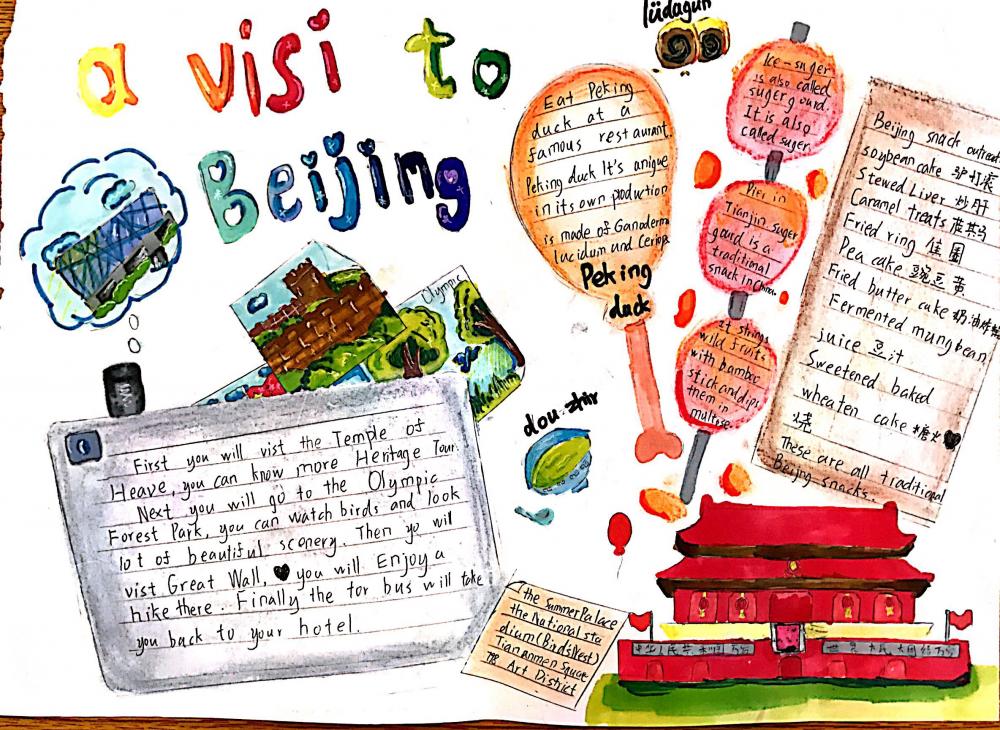 a visi to
Beijing
lüdagun
Eat Peking
duck at a
famous restaurant
Peking duck It's anique
in its own production
is made of Ganoderma
lucidum und Ceriops
Peking
duck
Ice-suger
is also called
suger gourd.
It is also
called suger.
Pier in
Tianjin. suger
gourd is a
traditional
snack In China.
It strings
wild fruit
with bamboo
stick and dips
them in
maltose.
Beijing snack
soybean cake 驴打滚
Stewed Liver 炒肝
Caramel treats
Fried ring 圈
Pea cake 豌豆黄
Fried butter cake 奶油炸糕
Fermented mungbean
juice 豆汁
Sweetened baked
wheaten cake 糖火
烧
These are all traditional
Beijing snacks.
Olympic
dou-zhir
First you will vist the Temple of
Heave, you can know more Heritage Tour.
Next you will go to the Olympic
Forest Park, you can watch birds and look
lot of beautiful sconery. Then yo will
vist Great Wall, you will Enjoy a
hike there. Finally the tor bus will take
you back to your hotel.
the Summer Palace
the National sta
dium (Bird's Nest)
Tiananmen Square
798 Art District
中华人民共和国万岁
世界人民大团结万岁